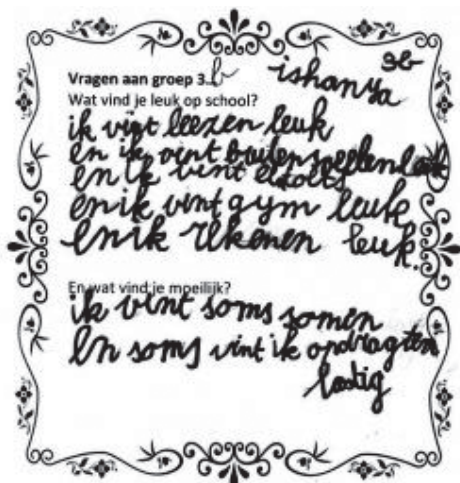 Vragen aan groep 3 b ishanya 3b
Wat vind je leuk op school?
ik vint leezen leuk
en ik vint buitenspeelen leuk
en ik vint
en ik vint gym leuk
en ik rekenen leuk.
En wat vind je moeilijk?
ik vint soms somen
en soms vint ik opdragten
lastig